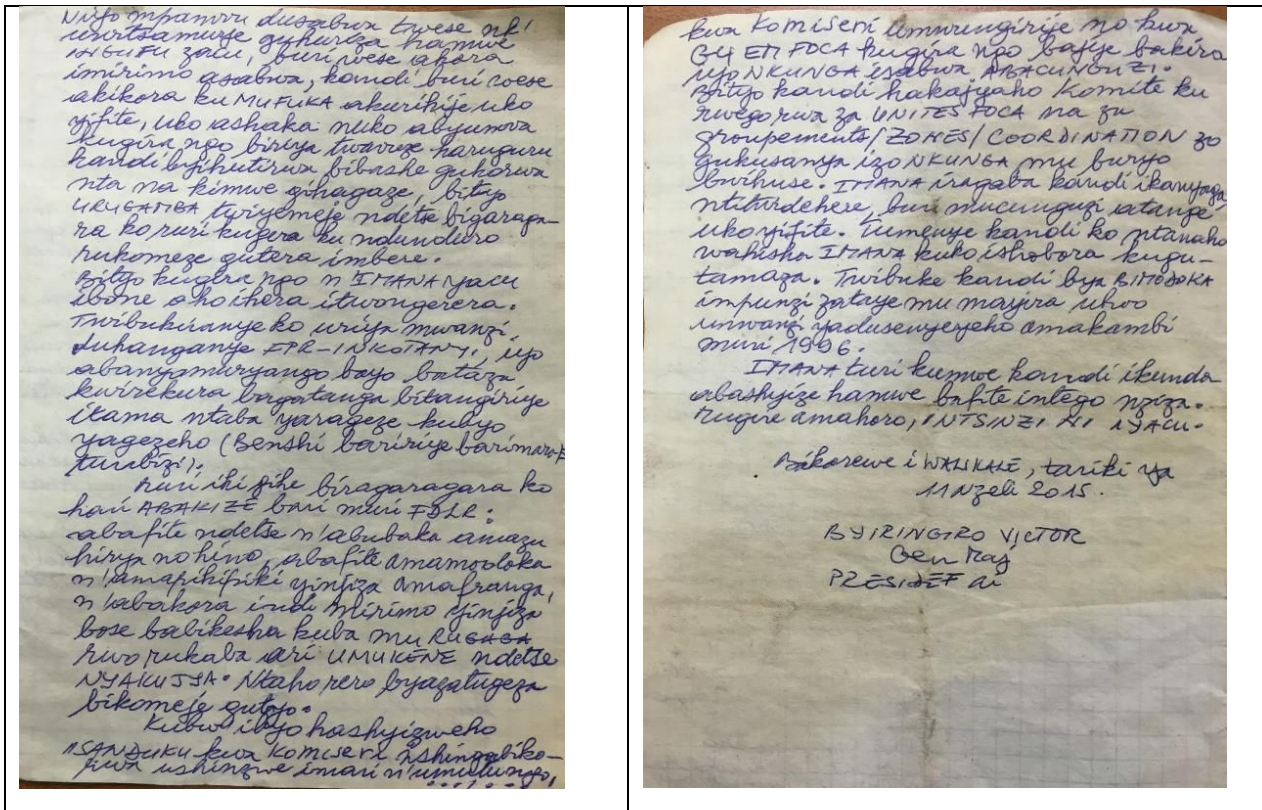 Niyo mpamvu dusabwa twese nk'
INGUFU zacu, buri wese akora
imirimo asabwa, kandi buri wese
akikora ku MUFUKA akurikije uko
yifite, uko ashaka nuko abyumva
kugira ngo biriya twavuze haruguru
kandi byihutirwa bibashe gukorwa
nta na kimwe gihagaze, bityo
URUGAMBA twiyemeje ndetse bigaraga-
ra ko ruri kugera ku ndunduro
rukomeze gutera imbere.
Bityo kugira ngo n'IMANA yacu
ibone aho ihera itwongerera.
Twibukiranye ko uriya mwanzi
duhanganye FPR-INKOTANYI, iyo
abanyamuryango bayo bataza
kwirekura bagatanga bitangiriye
itama ntaba yarageze kubyo
yagezeho (Benshi baririye barimara
Muri iki gihe biragaragara ko
hari ABAKIZE bari muri FDLR:
abafite ndetse n'abubaka amazu
hirya no hino, abafite amamodoka
n'amapikipiki yinjiza amafranga,
n'abakora indi mirimo yinjiza
bose babikesha kuba mu RUGAGA
rwo rukaba ari UMUKENE ndetse
NYAKUJYA. Ntaho rero byazatugeza
bikomeje gutyo.
Kubw'ibyo hashyizweho
ISANDUKU kwa Komiseri
ushinzwe imari n'umutungo,
kwa Komiseri Umwungirije no kwa
G4 EM FOCA kugira ngo bajye bakira
iyo NKUNGA isabwa ABACUNGUZI.
Bityo kandi hakajyaho Komite ku
rwego rwa za UNITES FOCA na za
groupements/ZONES/COORDINATION zo
gukusanya izo NKUNGA mu buryo
bwihuse. IMANA iragaba kandi ikanyaga
buri mucunguzi atange
uko yifite. Tumenye kandi ko ntanaho
wahisha IMANA kuko ishobora kugu-
tamaza. Twibuke kandi bya BIMODOKA
impunzi zataye mu mayira ubwo
umwanzi yadusenyeyeho amakambi
muri 1996.
IMANA turi kumwe kandi ikunda
abashyize hamwe bafite intego nziza.
Mugire amahoro, INTSINZI NI IYACU.
Bikorewe i WALIKALE, tariki ya
11 Nzeli 2015.
BYIRINGIRO VICTOR
Gen Maj
PRESIDEF ai